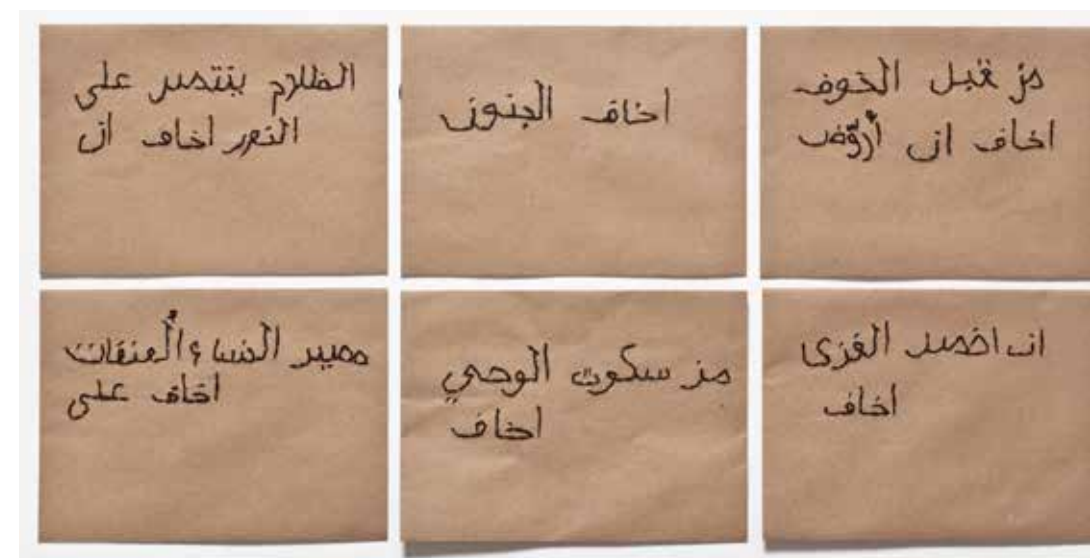 من قبل الخوف
اخاف ان أروّض
اخاف الجنون
الظلام ينتصر على
النور اخاف ان
ان
اخاف
من سكوت الوحي
اخاف
مصير النساء المعنفات
اخاف على